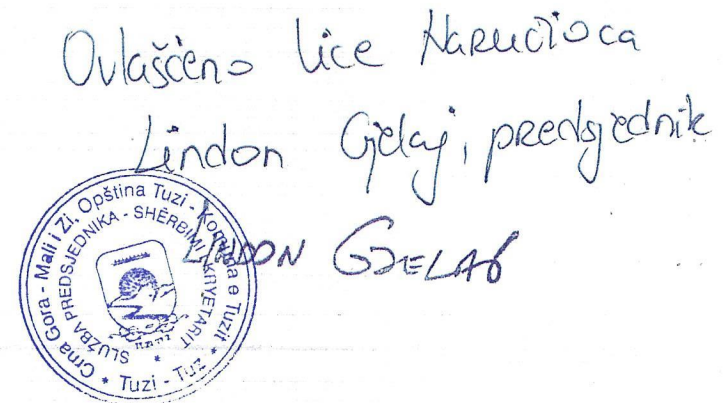 Ovlašćeno lice Naručioca
Lindon Gjelaj, predsjednik
LINDON GJELAJ
Crna Gora - Mali i Zi, Opština Tuzi - Komuna e Tuzit
SLUŽBA PREDSJEDNIKA - SHËRBIMI I KRYETARIT
* Tuzi - Tuz *